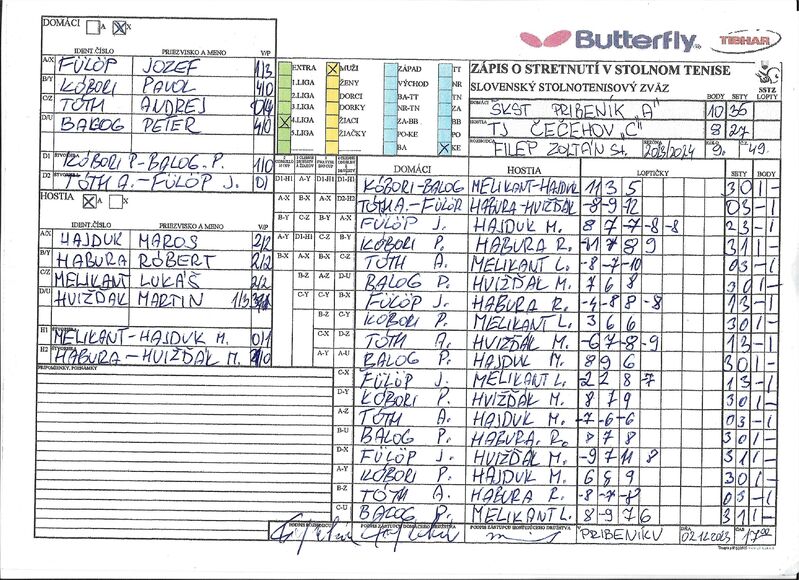 DOMÁCI A X
Butterfly TIBHAR
IDENT.ČÍSLO PRIEZVISKO A MENO V/P
A/X FÜLÖP JOZEF 1/3
B/Y KÓBORI PAVOL 4/0
C/Z TÓTH ANDREJ 0/4
D/U BALOG PETER 4/0
D1 ŠTVORHRA KÓBORI P-BALOG P. 1/0
D2 TÓTH A.-FÜLÖP J. 0/1
EXTRA
1.LIGA
2.LIGA
3.LIGA
4.LIGA
5.LIGA
MUŽI
ŽENY
DORCI
DORKY
ŽIACI
ŽIAČKY
ZÁPAD
VÝCHOD
BA-TT
NR-TN
ZA-BB
PO-KE
BA
TT
NR
TN
ZA
BB
PO
KE
ZÁPIS O STRETNUTÍ V STOLNOM TENISE
SLOVENSKÝ STOLNOTENISOVÝ ZVÄZ SSTZ
DOMÁCI SKST PRIBENÍK "A" BODY 10 SETY 36 LOPTY
HOSTIA TJ ČEČEHOV "C" 8 27
ROZHODCA FILEP ZOLTÁN St. SEZÓNA 2013/2014 9. 49.
HOSTIA A X
IDENT.ČÍSLO PRIEZVISKO A MENO V/P
A/X HAJDUK MAROS 2/2
B/Y HABURA RÓBERT 2/2
C/Z MELIKANT LUKÁŠ 2/2
D/U HVIŽĎAK MARTIN 1/3
H1 ŠTVORHRA MELIKANT-HAJDUK M. 0/1
H2 HABURA-HVIŽĎAK M. 1/0
PRIPOMIENKY, POZNÁMKY
DOMÁCI HOSTIA LOPTIČKY SETY BODY
D1-H1 KÓBORI-BALOG MELIKANT-HAJDUK 11 3 5 3 0 1 -
D2-H2 TÓTH A.-FÜLÖP HABURA-HVIŽĎAK -8 -9 -12 0 3 - 1
A-X FÜLÖP J. HAJDUK M. 8 7 -7 -8 -8 2 3 - 1
B-Y KÓBORI P. HABURA R. -11 7 8 9 3 1 1 -
C-Z TÓTH A. MELIKANT L. -8 -7 -10 0 3 - 1
D-U BALOG P. HVIŽĎÁK M. 7 6 8 3 0 1 -
A-Y FÜLÖP J. HABURA R. -4 -8 8 -8 1 3 - 1
KÓBORI P. MELIKANT L. 3 6 6 3 0 1 -
TÓTH A. HVIŽĎÁK M. -6 7 -8 -9 1 3 - 1
BALOG P. HAJDUK M. 8 9 6 3 0 1 -
C-X FÜLÖP J. MELIKANT L. 1 3 - 1
D-Y KÓBORI P. HVIŽĎÁK M. 8 7 9 3 0 1 -
A-Z TÓTH A. HAJDUK M. -7 -6 -6 0 3 - 1
B-U BALOG P. HABURA R. 8 7 8 3 0 1 -
D-X FÜLÖP J. HVIŽĎÁK M. -9 7 11 8 3 1 1 -
A-Y KÓBORI P. HAJDUK M. 6 6 9 3 0 1 -
B-Z TÓTH A. HABURA R. -8 -7 -8 0 3 - 1
C-U BALOG P. MELIKANT L. 8 -9 7 6 3 1 1 -
PODPIS ROZHODCU PODPIS ZÁSTUPCU DOMÁCEHO DRUŽSTVA PODPIS ZÁSTUPCU HOSŤUJÚCEHO DRUŽSTVA V PRIBENÍKU DŇA 02.12.2013 ČAS 17 00